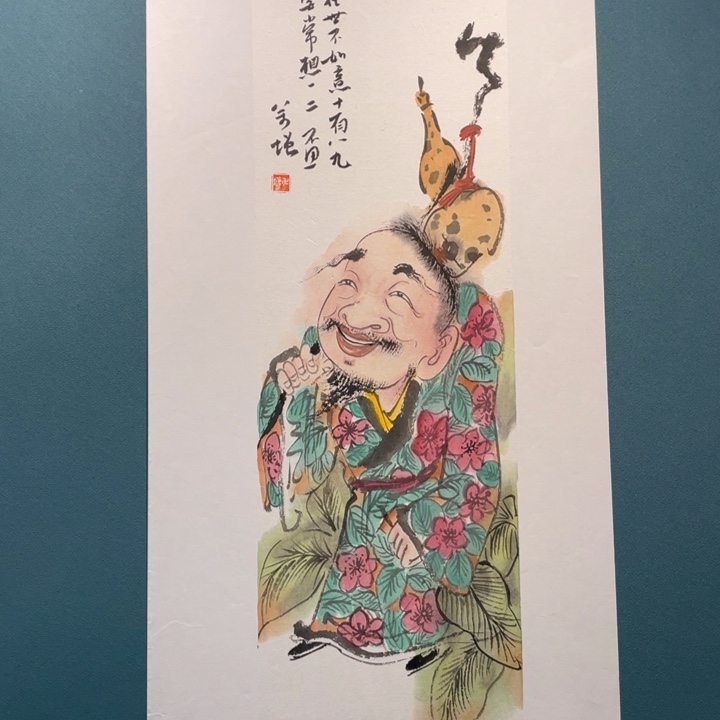 世不如意十有八九
常想一二 不思